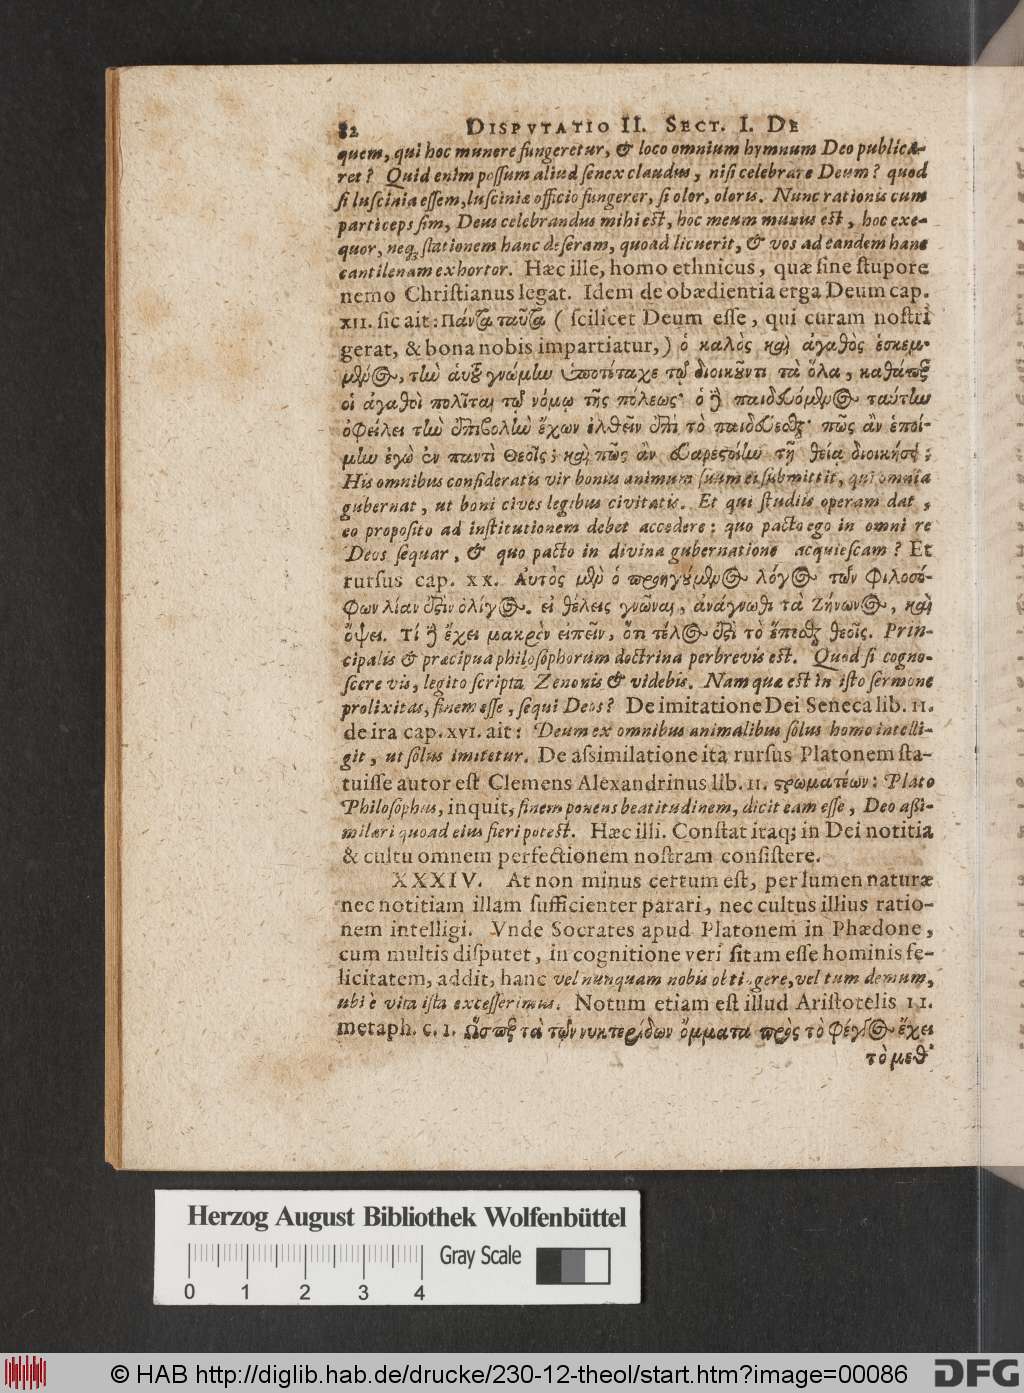 82 DISPVTATIO II. SECT. I. DE
quem, qui hoc munere fungeretur, & loco omnium hymnum Deo publica-
ret? Quid enim possum aliud senex claudus, nisi celebrare Deum? quod
si luscinia essem, lusciniæ officio fungerer, si olor, oloris. Nunc rationis cum
particeps sim, Deus celebrandus mihi est, hoc meum munus est, hoc exe-
quor, neq; stationem hanc deseram, quoad licuerit, & vos ad eandem hanc
cantilenam exhortor. Hæc ille, homo ethnicus, quæ sine stupore
nemo Christianus legat. Idem de obædientia erga Deum cap.
XII. sic ait: Πάντα ταῦτα ( scilicet Deum esse, qui curam nostri
gerat, & bona nobis impartiatur, ) ὁ καλὸς καὶ ἀγαθὸς ἐσκεμ-
μένος, τὴν αὑτοῦ γνώμην ὑποτέταχε τῷ διοικοῦντι τὰ ὅλα, καθάπερ
οἱ ἀγαθοὶ πολῖται τῷ νόμῳ τῆς πόλεως· ὁ δὲ παιδευόμενος ταύτην
ὀφείλει τὴν ἐπιβολὴν ἔχων ἐλθεῖν ἐπὶ τὸ παιδεύεσθαι· πῶς ἂν ἑποί-
μην ἐγὼ ἐν παντὶ Θεοῖς; καὶ πῶς ἂν εὐαρεστοίην τῇ θείᾳ διοικήσει;
His omnibus consideratis vir bonus animum suum ei submittit, qui omnia
gubernat, ut boni cives legibus civitatis. Et qui studiis operam dat,
eo proposito ad institutionem debet accedere: quo pacto ego in omni re
Deos sequar, & quo pacto in divina gubernatione acquiescam? Et
rursus cap. XX. Αὐτὸς μὲν ὁ προηγούμενος λόγος τῶν φιλοσό-
φων λίαν ἐστὶν ὀλίγος. εἰ θέλεις γνῶναι, ἀνάγνωθι τὰ Ζήνωνος, καὶ
ὄψει. τί δὲ ἔχει μακρὸν εἰπεῖν, ὅτι τέλος ἐστὶ τὸ ἕπεσθαι θεοῖς. Prin-
cipalis & præcipua philosophorum doctrina perbrevis est. Quod si cogno-
scere vis, legito scripta Zenonis & videbis. Nam quæ est in isto sermone
prolixitas, finem esse, sequi Deos? De imitatione Dei Seneca lib. II.
de ira cap. XVI. ait: Deum ex omnibus animalibus solus homo intelli-
git, ut solus imitetur. De assimilatione ita rursus Platonem sta-
tuisse autor est Clemens Alexandrinus lib. II. στρωματέων: Plato
Philosophus, inquit, finem ponens beatitudinem, dicit eam esse, Deo aßi-
milari quoad eius fieri potest. Hæc illi. Constat itaq; in Dei notitia
& cultu omnem perfectionem nostram consistere.
XXXIV. At non minus certum est, per lumen naturæ
nec notitiam illam sufficienter parari, nec cultus illius ratio-
nem intelligi. Vnde Socrates apud Platonem in Phædone,
cum multis disputet, in cognitione veri sitam esse hominis fe-
licitatem, addit, hanc vel nunquam nobis obtingere, vel tum demum,
ubi è vita ista excesserimus. Notum etiam est illud Aristotelis II.
metaph. c. 1. Ὥσπερ τὰ τῶν νυκτερίδων ὄμματα πρὸς τὸ φέγγος ἔχει
τὸ μεθ'
Herzog August Bibliothek Wolfenbüttel
Gray Scale
0 1 2 3 4
© HAB http://diglib.hab.de/drucke/230-12-theol/start.htm?image=00086
DFG